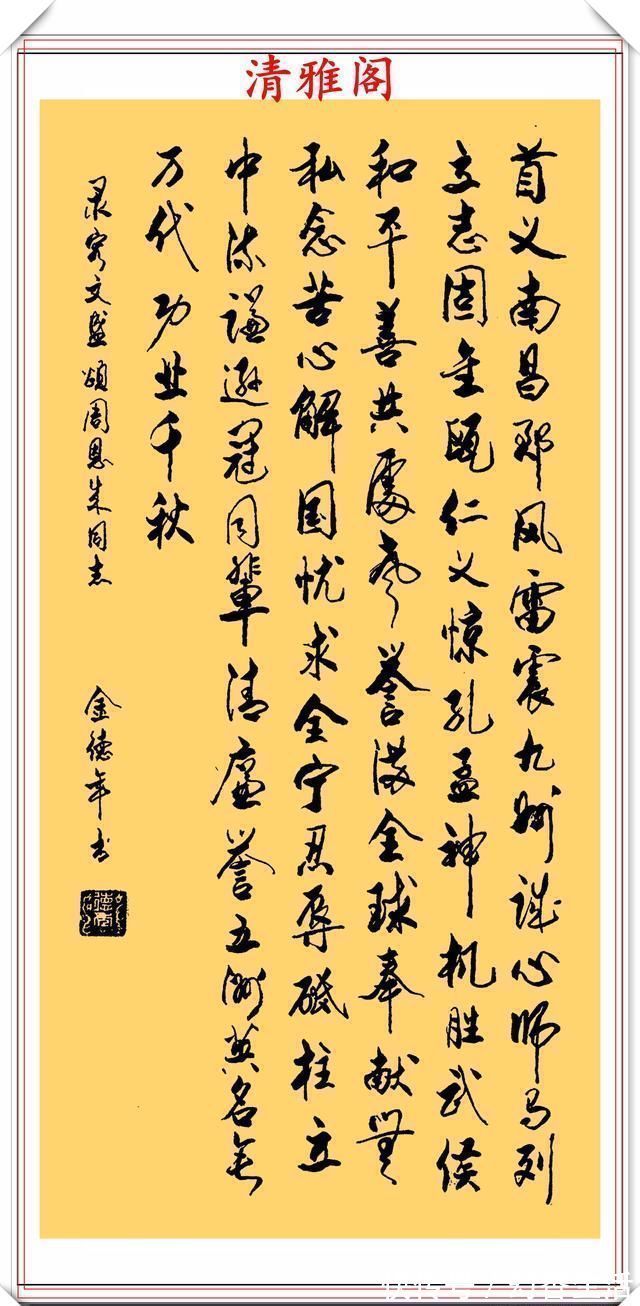 清雅阁
首义南昌郡风雷震九州诚心师马列
立志固金瓯仁义惊孔孟神机胜武侯
和平善共處誉满全球奉献無
私念苦心解国忧求全宁忍辱砥柱立
中流谦逊冠同辈清廉誉五洲英名垂
万代功业千秋
录文盛颂周恩来同志
金德年书